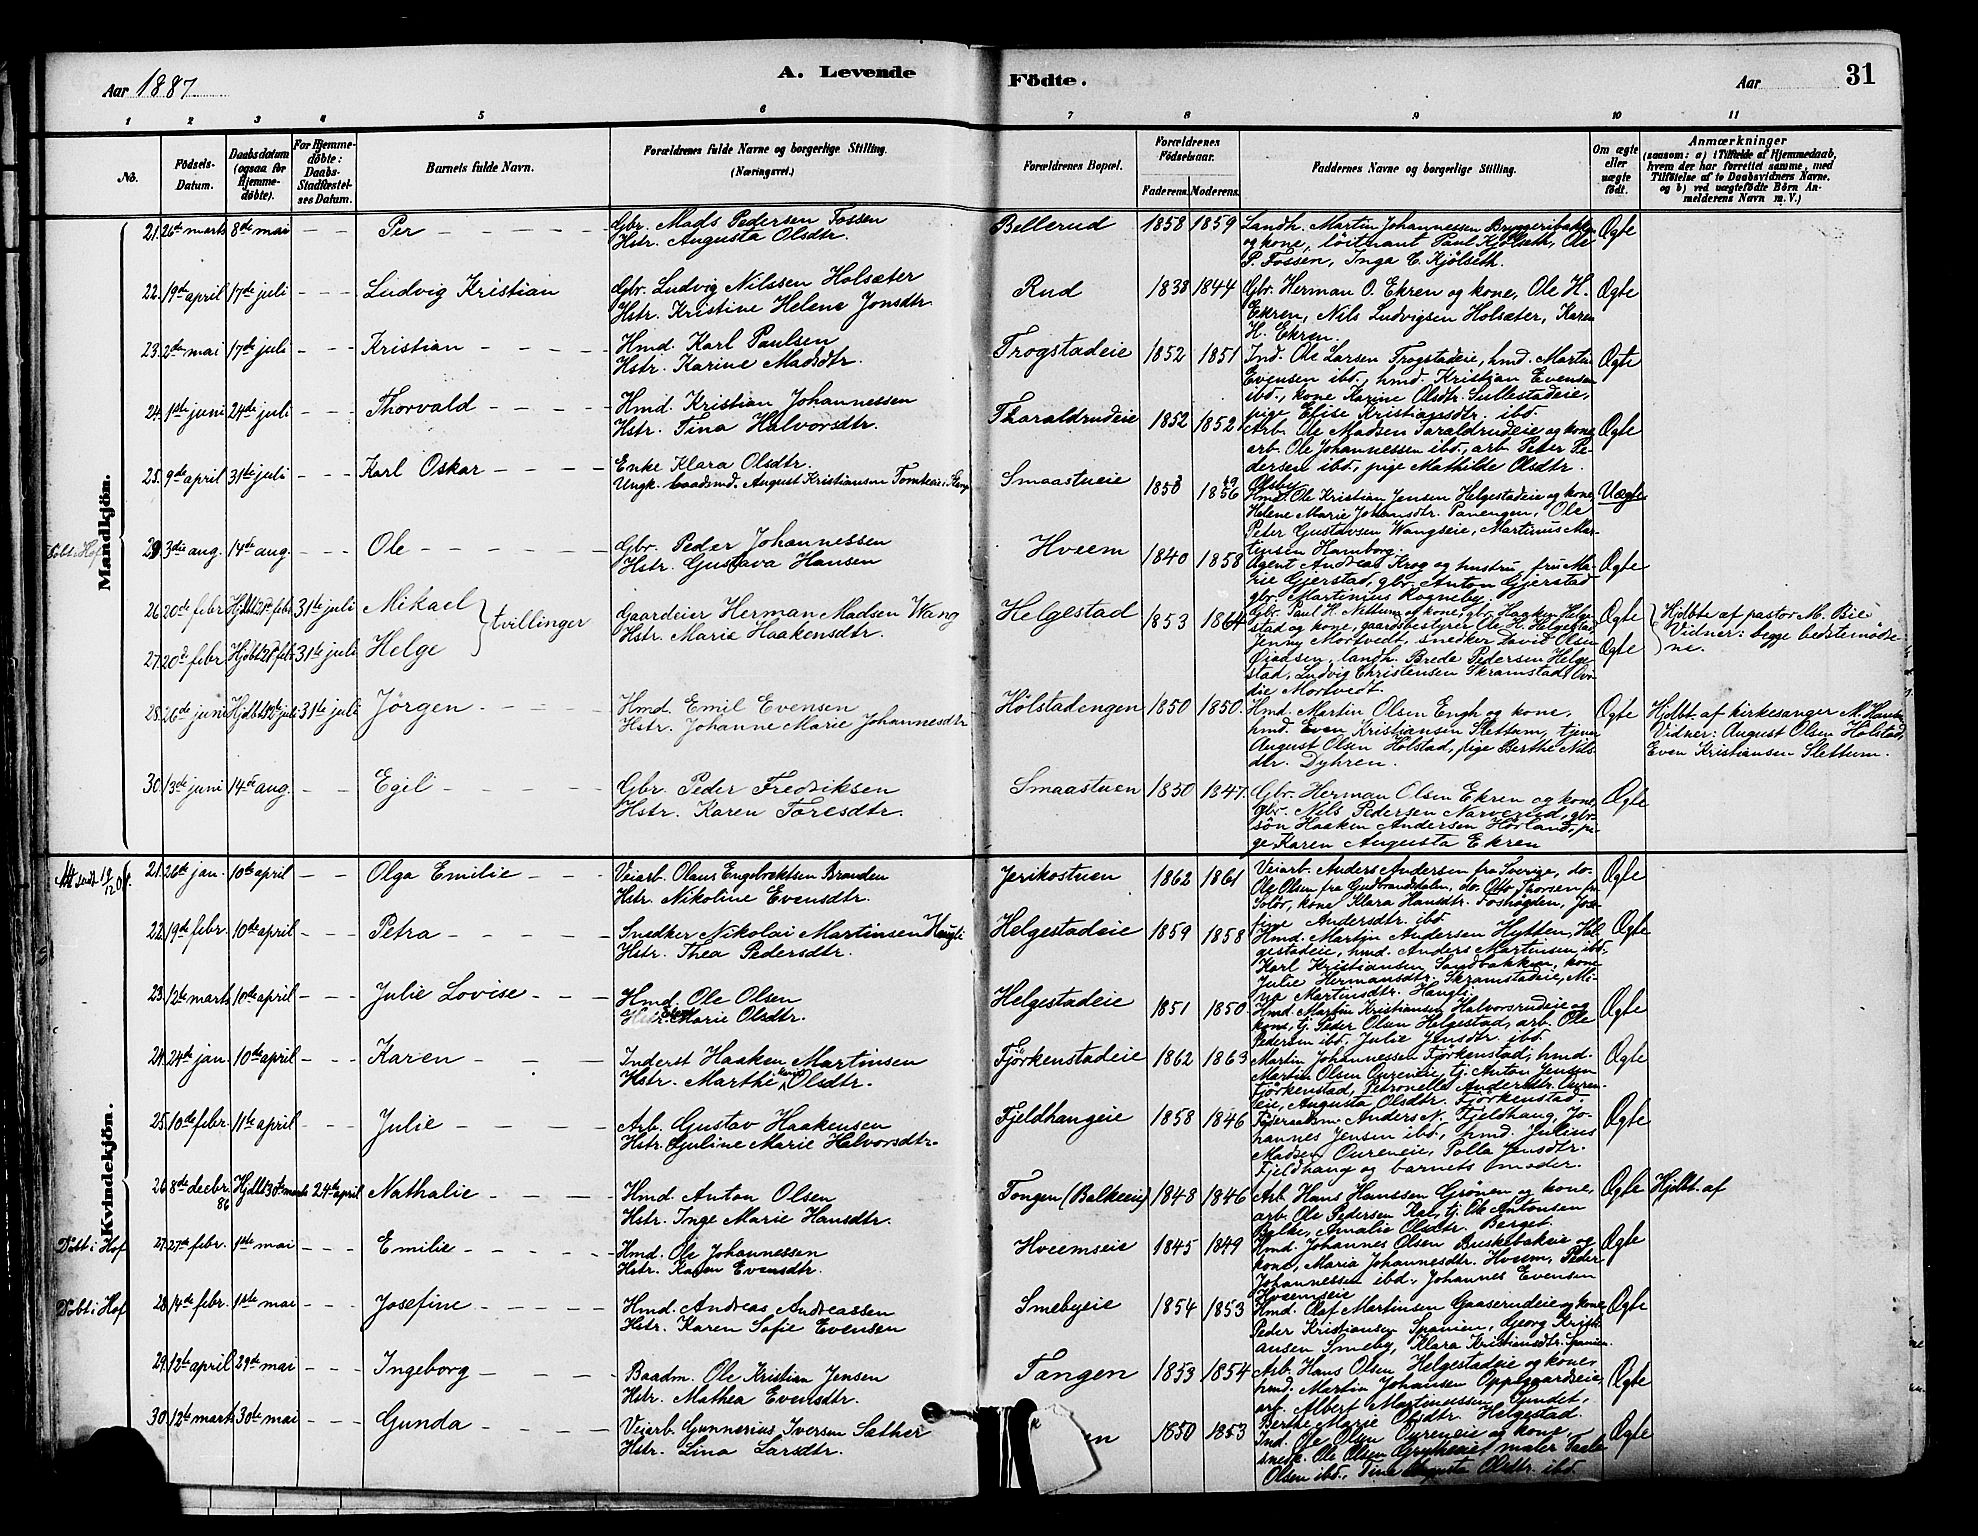 Aar 1887.
A. Levende Födte.
Aar
31
1 2 3 4 5 6 7 8 9 10 11
No.
Födsels-Datum.
Daabsdatum (ogsaa for Hjemmedöbte).
For Hjemmedøbte: Daabs-Stadfæstelses Datum.
Barnets fulde Navn.
Forældrenes fulde Navne og borgerlige Stilling. (Næringsvei.)
Forældrenes Bopæl.
Forældrenes Födselsaar.
Faderens. Moderens.
Faddernes Navne og borgerlige Stilling.
Om ægte eller uægte födt.
Anmærkninger
(saasom: a) i Tilfælde af Hjemmedaab, hvem der har forrettet samme, med Tilföielse af to Daabsvidners Navne, og b) ved uægtefödte Börn Anmelderens Navn m. V.)
Mandkjön.
21. 26de marts 8de mai Per Gbr. Mads Pedersen Fossen Bellerud 1858 1859 Landh. Martin Johannessen Ægte
Hstr. Augusta Olsdtr. og kone, löitnant Paul Kjölseth, Ole
P. Fossen, Inga C. Kjölseth.
22. 19de april 17de juli Ludvig Kristian Gbr. Ludvig Nilssen Holsæter Rud 1838 1844 Gbr. Herman O. Ekren og kone, Ole H. Ægte
Hstr. Kristine Helene Jonsdtr. Ekren, Nils Ludvigsen Holsæter, Karen
H. Ekren.
23. 2den mai 17de juli Kristian Hmd. Karl Paulsen Trogstadeie 1852 1851 Ind. Ole Larsen Trogstadeie, hmd. Martin Ægte
Hstr. Karine Madsdtr. Evensen ibd., hmd. Kristian Evensen
ibd., kone Karine Olsdtr. Sullestadeie,
pige Efise Kristiansdtr. ibd.
24. 1ste juni 24de juli Thorvald Hmd. Kristian Johannessen Tharaldrudeie 1852 1852 Arb. Ole Madsen Taraldrudeie og kone, Ægte
Hstr. Tina Halvorsdtr. arb. Ole Johannessen ibd., arb. Peter Pe-
dersen ibd., pige Mathilde Olsdtr.
Olsby.
25. 9de april 31te juli Karl Oskar Enke Klara Olsdtr. Smaastueie 1853 1856 Hmd. Ole Kristian Jensen Helgestadeie og kone, Uægte
Ungk. baadsmd. August Kristiansen Helene Marie Johansdtr. Panengen, Ole
Peter Gustavsen Wangseie, Martinus Mar-
tinsen Hamborg.
Döbt i Hof 29. 3die aug. 14de aug. Ole Gbr. Peder Johannessen Hveem 1840 1858 Agent Andreas Krog og hustru, fru Ma- Ægte
Hstr. Gustava Hansen rie Gjerstad, gbr. Anton Gjerstad
gbr. Martinius Rogneby.
26. 20de febr. Hjdbt 21de febr. 31te juli Mikael } tvillinger Gaardeier Herman Madsen Wang Helgestad 1853 1864 Gbr. Paul H. Nettum og kone, gbr. Haaken Helge- Ægte Hjdbte af pastor M. Bie.
27. 20de febr. Hjdbt 21de febr. 31te juli Helge Hstr. Marie Haakensdtr. stad og kone, gaardsbestyrer Ole H. Helgestad, Ægte Vidner: begge bedstemödre-
Jenny Mortvedt, snedker David Olsen ne.
landh. Brede Pedersen Helge-
stad, Ludvig Christensen Skramstad,
Mortvedt.
28. 26de juni Hjdbt juli 31te juli Jörgen Hmd. Emil Evensen Hölstadengen 1850 1850. Hmd. Martin Olsen Engh og kone, Ægte Hjdbt. af kirkesanger M.
Hstr. Johanne Marie Johannesdtr hmd. Even Kristiansen Slettum, tjener Vidner: August Olsen Hölstad,
August Olsen Hölstad, pige Berthe Nils- Even Kristiansen Slettum.
dtr. Dyhren.
30. 13de juni 14de aug. Egil Gbr. Peder Fredriksen Smaastuen 1850 1847. Gbr. Herman Olsen Ekren og kone, Ægte
Hstr. Karen Toresdtr. gbr. Nils Pedersen Narverud, gbr.
sön Haaken Andersen Hörland, pi-
ge Karen Augusta Ekren
Kvindekjön.
21. 26de jan. 10de april Olga Emilie Veiarb. Olaus Engebretsen Braaden Jerikostuen 1862 1861 Veiarb. Anders Andersen fra Sverige, do. Ægte
Hstr. Nikoline Evensdtr. Ole Olsen fra Gudbrandsdalen, do. Otto Thorsen fra
Solör, kone Klara Hansdtr. Foshögden, Jose-
fine Andersdtr. ibd.
22. 19de febr. 10de april Petra Snedker Nikolai Martinsen Haugli Helgestadeie 1859 1858 Hmd. Martin Andersen Hytten, Hel- Ægte
Hstr. Thea Pedersdtr. gestadeie, hmd. Anders Martinsen ibd.
Karl Kristiansen Sandbakken, kone
Julie Hermansdtr. Skramstadeie, Mi-
na Martinsdtr. Haugli.
23. 12te marts 10de april Julie Lovise Hmd. Ole Olsen Helgestadeie 1851 1850 Hmd. Martin Kristiansen Halvorsrudeie og Ægte
Hstr. Marie Olsdtr. kone, tj. Peder Olsen Helgestad, arb. Ole
Pedersen ibd., Julie Jensdtr. ibd.
24. 24de jan. 10de april Karen Inderst Haaken Martinsen Fjörkenstadeie 1862 1863 Martin Johannessen Fjörkenstad, hmd. Ægte
Hstr. Marthe Olsdtr. Martin Olsen Oureneie, tj. Anton Jensen
Fjörkenstad, Petronelle Andersdtr. Ouren-
eie, Augusta Olsdtr. Fjörkenstad.
25. 10de febr. 11te april Julie Arb. Gustav Haakensen Fjeldhaugeie 1858 1846 Föderaadsm. Anders N. Fjeldhaug, Jo- Ægte
Hstr. Gjuline Marie Halvorsdtr. hannes Jensen ibd., hmd. Julius
Madsen Oureneie, Polla Jensdtr.
Fjeldhaug og barnets moder.
26. 8de decbr. 86 Hjdbt 30te marts 24de april Nathalie Hmd. Anton Olsen Tongen (Balkeeie) 1848 1846 Arb. Hans Hanssen Grönen og kone, Ægte Hjdbt. af
Hstr. Inge Marie Hansdtr. arb. Ole Pedersen tj. Ole Antonsen
Balke, Amalie Olsdtr. Berget.
Döbt i Hof 27. 27de febr. 1ste mai Emilie Hmd. Ole Johannessen Hveemseie 1845 1849 Hmd. Johannes Olsen Buskebakeie og Ægte
Hstr. Karen Evensdtr. kone, Maria Johannesdtr. Hveem, Peder
Johannessen ibd., Johannes Evensen
Hveemseie
Döbt i Hof 28. 14de febr. 1ste mai Josefine Hmd. Andreas Andreassen Smebyeie 1854 1853 Hmd. Olaf Martinsen Gaaserudeie og kone, Ægte
Hstr. Karen Sofie Evensen Peder Kristiansen Spanien, Georg Kristi-
ansen Smeby, Klara Kristiansdtr. Spanien.
29. 12te april 29de mai Ingeborg Baadm. Ole Kristian Jensen Tangen 1853 1854 Arb. Hans Olsen Helgestadeie og kone, Ægte
Hstr. Mathea Evensdtr. hmd. Martin Johansen Oppegaardseie,
arb. Albert Martinessen Gundet,
Berthe Marie Olsdtr. Helgestad.
30. 12te marts 30de mai Gunda Veiarb. Gunnerius Iversen Sæther 1850 1853 Ind. Ole Olsen Oureneie og kone, Ægte
Hstr. Lina Larsdtr. snedk. Ole Olsen maler
Olsen ibd., Tina Augusta Olsdtr. ibd.